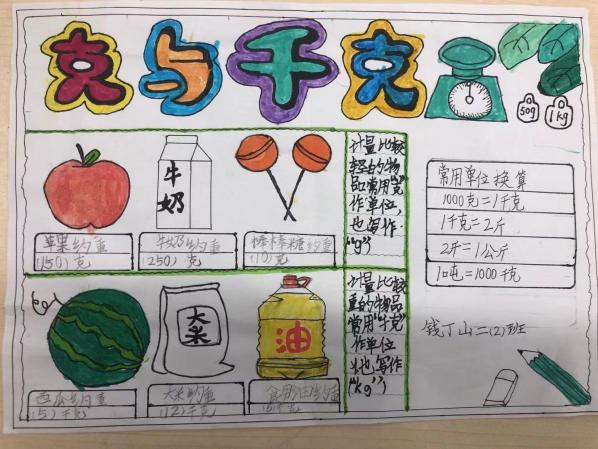 克与千克
50g
1kg
牛
奶
苹果约重
(150)克
牛奶约重
(250)克
棒棒糖约重
(10)克
计量比较
轻的物
品常用"克"
作单位,
也写作
"g"
常用单位换算
1000克=1千克
1千克=2斤
2斤=1公斤
1吨=1000千克
钱丁山二(2)班
大
米
油
西瓜约重
(5)千克
大米约重
(12)千克
食用油约重
千克
计量比较
重的物品
常用"千克"
作单位
也写作
("kg")